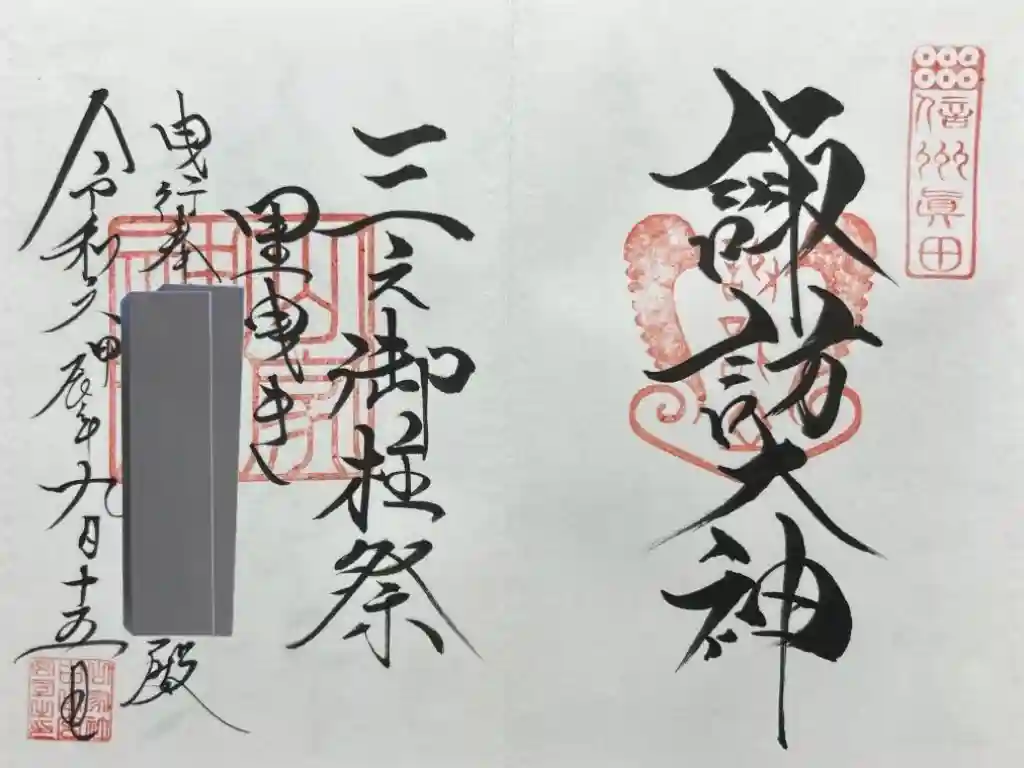 信州眞田
諏訪大神
三之御柱祭
里曳き
曳行奉
殿
令和六甲辰年九月十五日
山家神社